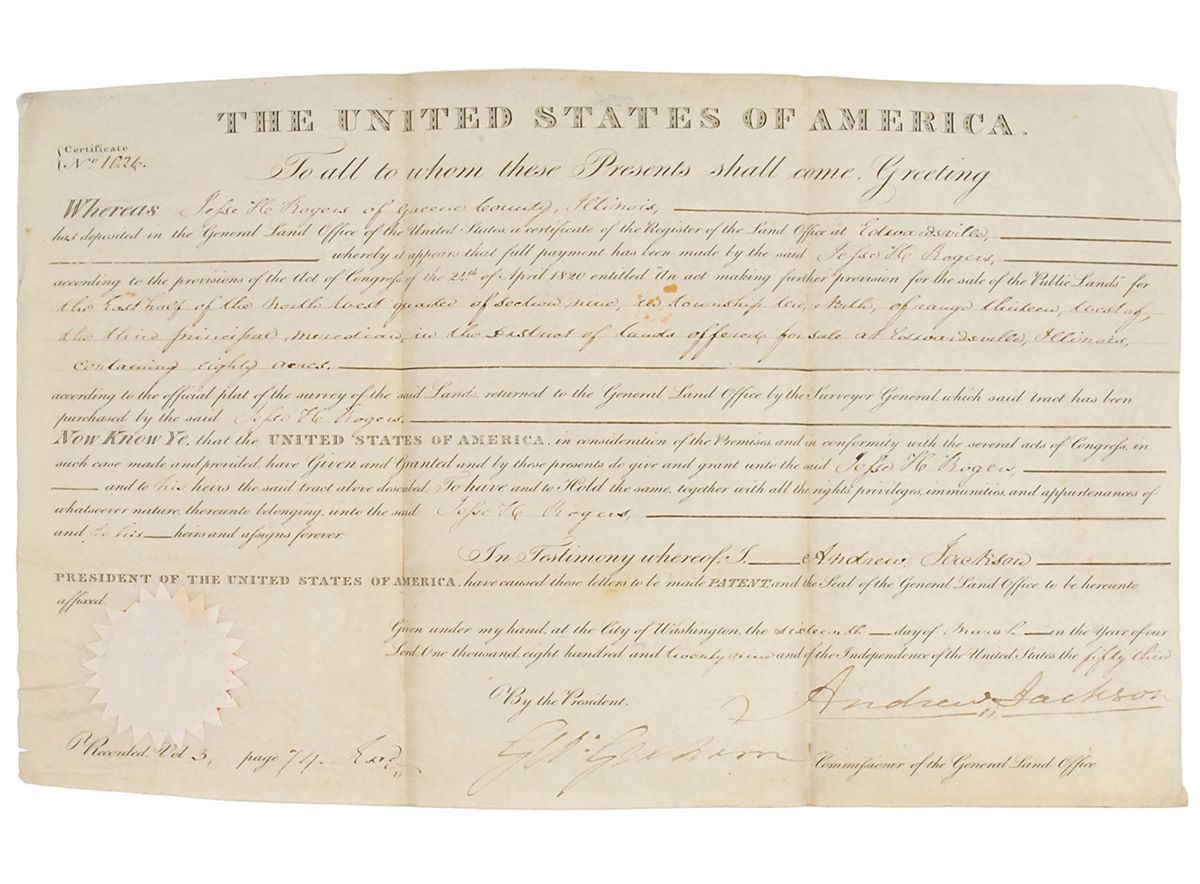 THE UNITED STATES OF AMERICA.
Certificate
No. 1026.
To all to whom these Presents shall come, Greeting
Whereas Jesse H Rogers of Greene County, Illinois,
has deposited in the General Land Office of the United States, a certificate of the Register of the Land Office at Edwardsville,
whereby it appears that full payment has been made by the said Jesse H Rogers,
according to the provisions of the Act of Congress of the 24th of April 1820 entitled "An act making further provision for the sale of the Public Lands" for
the East half of the North West quarter of section nine, in township ten, North, of range thirteen, West of,
the third principal meridian, in the District of lands offered for sale at Edwardsville, Illinois,
containing eighty acres.
according to the official plat of the survey of the said Lands, returned to the General Land Office by the Surveyor General, which said tract has been
purchased by the said Jesse H Rogers.
Now Know Ye, that the UNITED STATES OF AMERICA, in consideration of the Premises, and in conformity with the several acts of Congress, in
such case made and provided, have Given and Granted and by these presents do give and grant unto the said Jesse H Rogers,
and to his heirs the said tract above described. To have and to Hold the same, together with all the rights privileges, immunities, and appurtenances of
whatsoever nature, thereunto belonging, unto the said Jesse H Rogers,
and to his heirs and assigns forever
In Testimony whereof, I, Andrew Jackson
PRESIDENT OF THE UNITED STATES OF AMERICA, have caused these letters to be made PATENT, and the Seal of the General Land Office to be hereunto
affixed.
Given under my hand, at the City of Washington, the sixteenth day of March in the Year of our
Lord, One thousand, eight hundred and twenty nine and of the Independence of the United States the fifty third
By the President. Andrew Jackson
Recorded, Vol 3, page 74 G. W. Graham Commissioner of the General Land Office